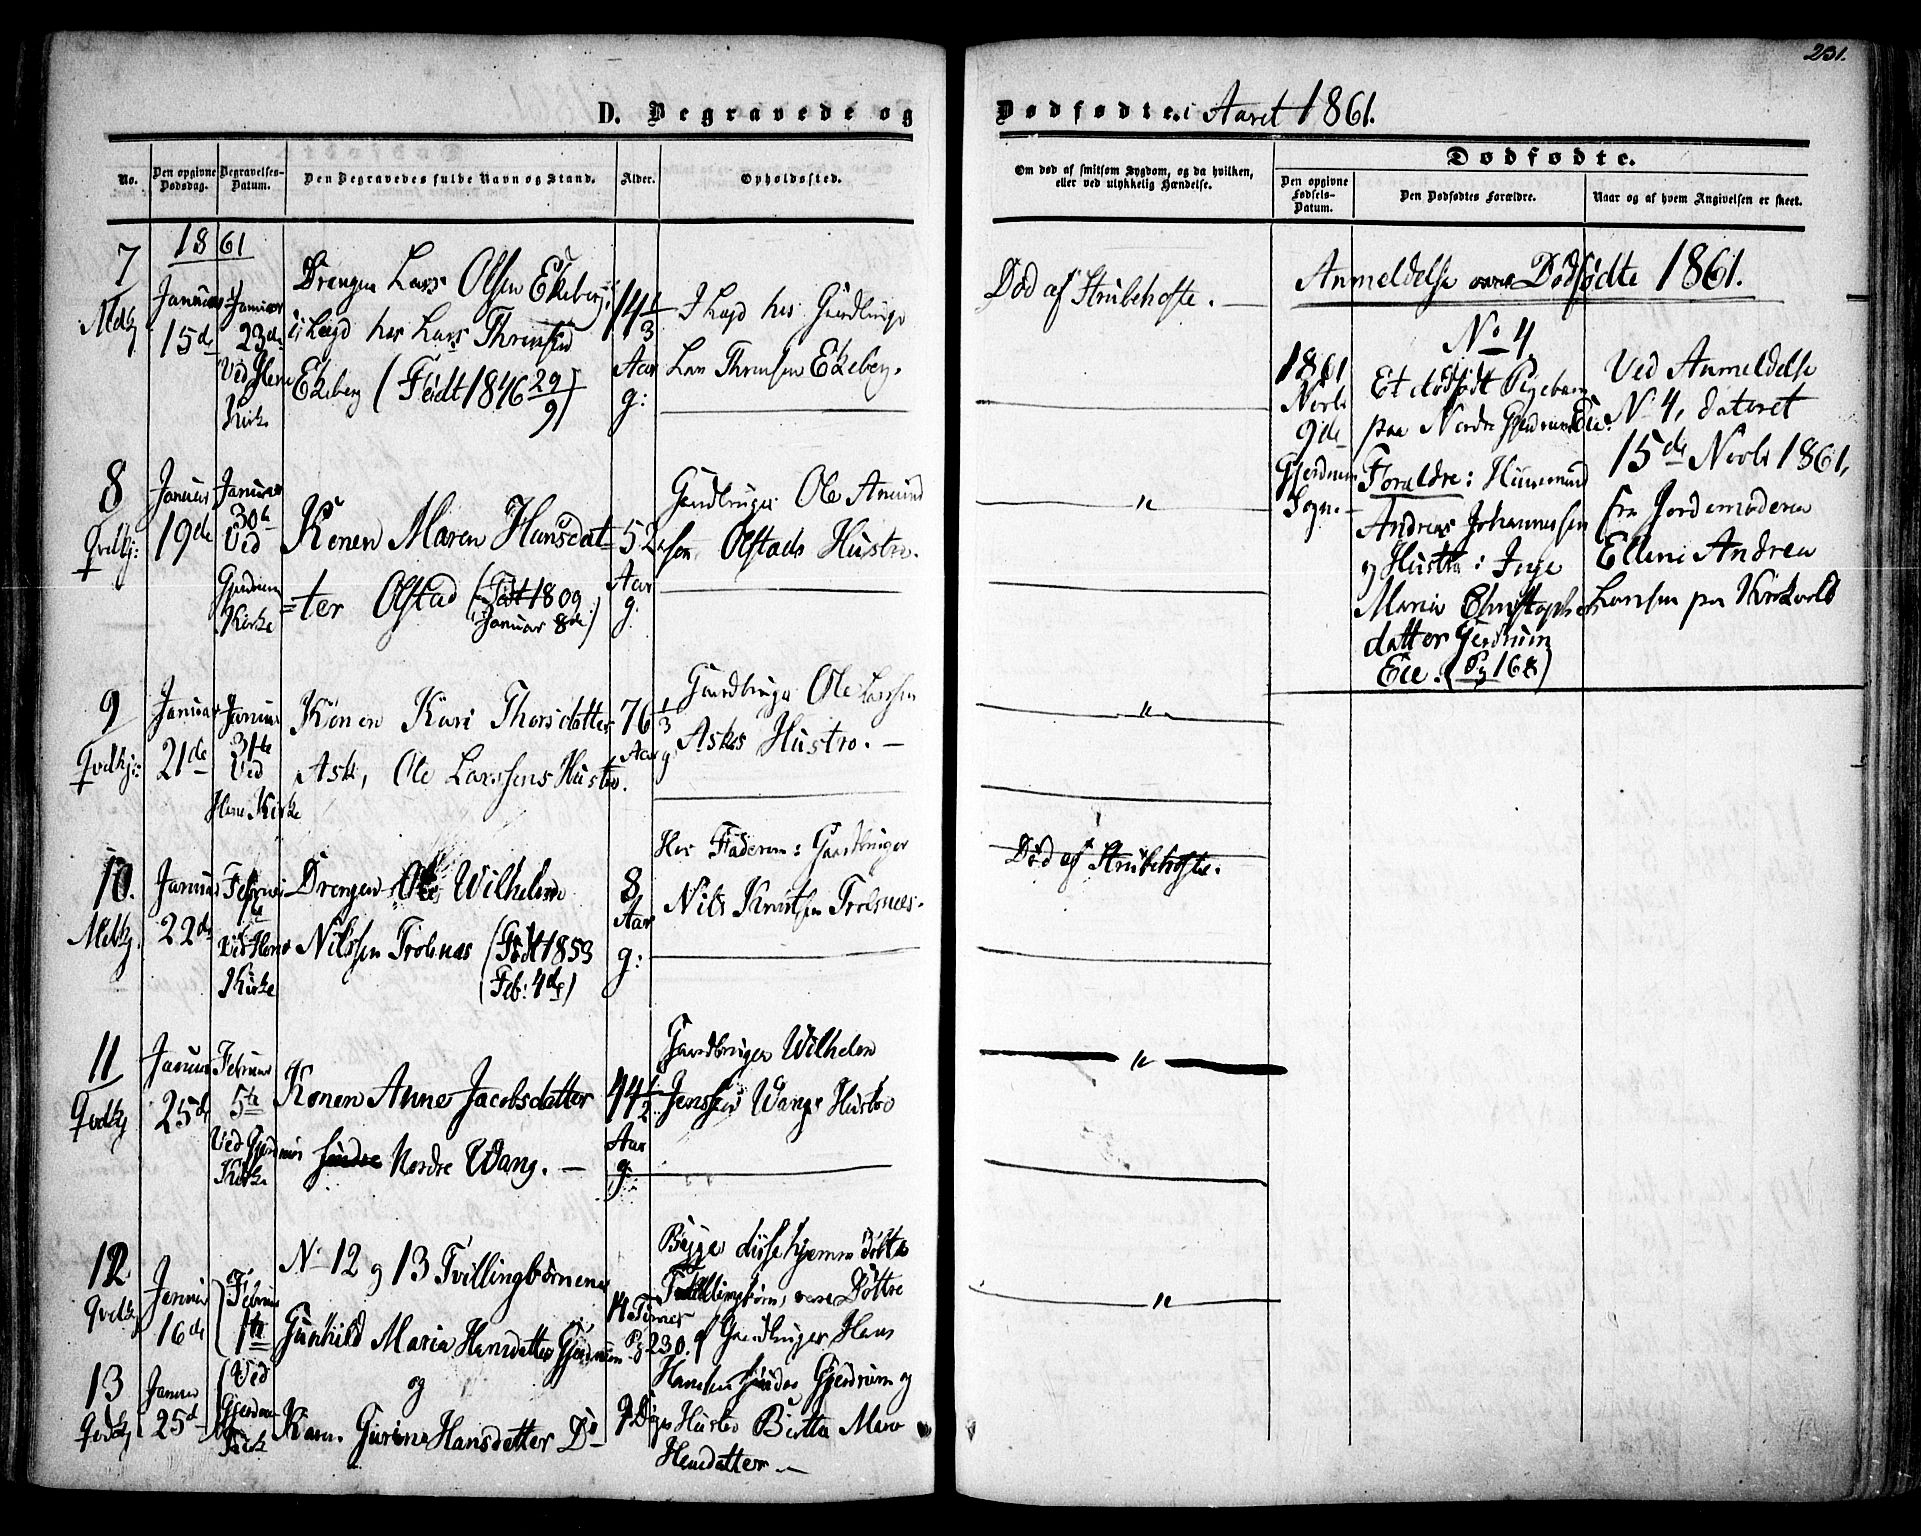 231.
D. Begravede og
Dødfødte. i Aaret 1861.
No.
Den opgivne Dødsdag.
Begravelses-Datum.
Den Begravedes fulde Navn og Stand.
Alder.
Opholdssted.
Om død af smitsom Sygdom, og da hvilken,
eller ved ulykkelig Hændelse.
Dødfødte.
Den opgivne Fødsels-Datum.
Den Dødfødtes Forældre.
Naar og af hvem Angivelsen er skeet.
1861
7
Mdkj
Januar
15de
Januar
23de
Ved Heni
Kirke
Drengen Lars Olsen Ekeberg
i Lægd hos Lars Thronsen
Ekeberg (Født 1846 29/9)
14 1/3
Aar
g:
I Lægd hos Gaardbruger
Lars Thronsen Ekeberg.
Død af Strubehoste.
8
Qvdkj:
Januar
19de
Januar
30te
Ved
Gjerdrum
Kirke
Konen Maren Hansdat-
=ter Olstad (Født 1809
Januar 8de)
52
Aar
g:
Gaardbruger Ole Amund
sen Olstads Hustro.
"
9
Qvdkj:
Januar
21de
Januar
31te
Ved
Heni Kirke
Konen Kari Thorsdatter
Ask, Ole Larssens Hustro.
76 1/3
Aar
g
Gaardbruger Ole Larssen
Asks Hustro. —
"
10.
Mdkj.
Januar
22de
Februar
1te
Ved Heni
Kirke
Drengen Ole Wilhelm
Nilssen Frolnæs (Født 1853
(Feb: 4de)
8
Aar
g:
Hos Faderen: Gaardbruger
Nils Knutsen Frolnæs.
Død af Strubehoste.
11
Qvdkj
Januar
25de
Februar
5te
Ved Gjerdrum
Kirke
Konen Anne Jacobsdatter
søndre Nordre Wang. —
44 1/2
Aar
g:
Gaardbruger Wilhelm
Jenssen Wangs Hustro
"
12
Qvdkj
Januar
16de
Februar
1te
No 12 og 13 Tvillingbørnene
Gunhild Maria Hansdatter Gjerdrum
14 Timer
Pg 230.
Begge disse hjemmedøbte
Tvillingbørn, vare Døttre
af Gaardbruger Hans
Hansen søndre Gjerdrum og
Hustro Birtta Mari
Hansdatter. —
"
13
Qvdkj
Januar
25de
Ved
Gjerdrum
Kirk
og
Karen Gurine Hansdatter Do
9 Dage
Anmeldelse over Dødfødte 1861.
No 4
1861
Novbr
9de
Gjerdrum
Sogn. —
Et dødfødt Pigebarn
paa Nordre Gjerdrum Eie.
Forældre: Huusmand
Andreas Johannessen
og Hustro: Inge
Maria Christopher
datter Gjerdrum
Eie. (Pg 168)
Ved Anmeldelse
No 4, dateret
15de Novbr 1861,
fra Jordemoderen
Elleni Andrea
Larssen paa Kirkvold